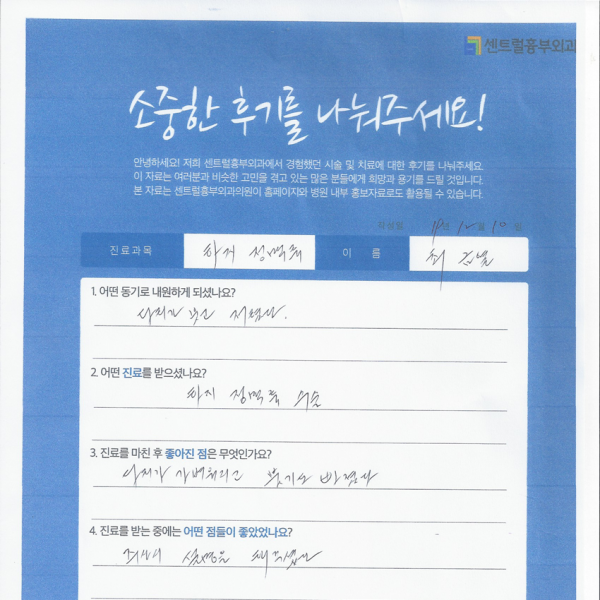 센트럴흉부외과
소중한 후기를 나눠주세요!
안녕하세요! 저희 센트럴흉부외과에서 경험했던 시술 및 치료에 대한 후기를 나눠주세요
이 자료는 여러분과 비슷한 고민을 겪고 있는 많은 분들에게 희망과 용기를 드릴 것입니다.
본 자료는 센트럴흉부외과의원이 홈페이지와 병원 내부 홍보자료로도 활용될 수 있습니다.
작성일 년 12월 10일
진료과목 하지 정맥류 이 름 최
1. 어떤 동기로 내원하게 되셨나요?
2. 어떤 진료를 받으셨나요?
하지 정맥류
3. 진료를 마친 후 좋아진 점은 무엇인가요?
다리가 가벼워지고 붓기도 빠졌다
4. 진료를 받는 중에는 어떤 점들이 좋았었나요?
설명을